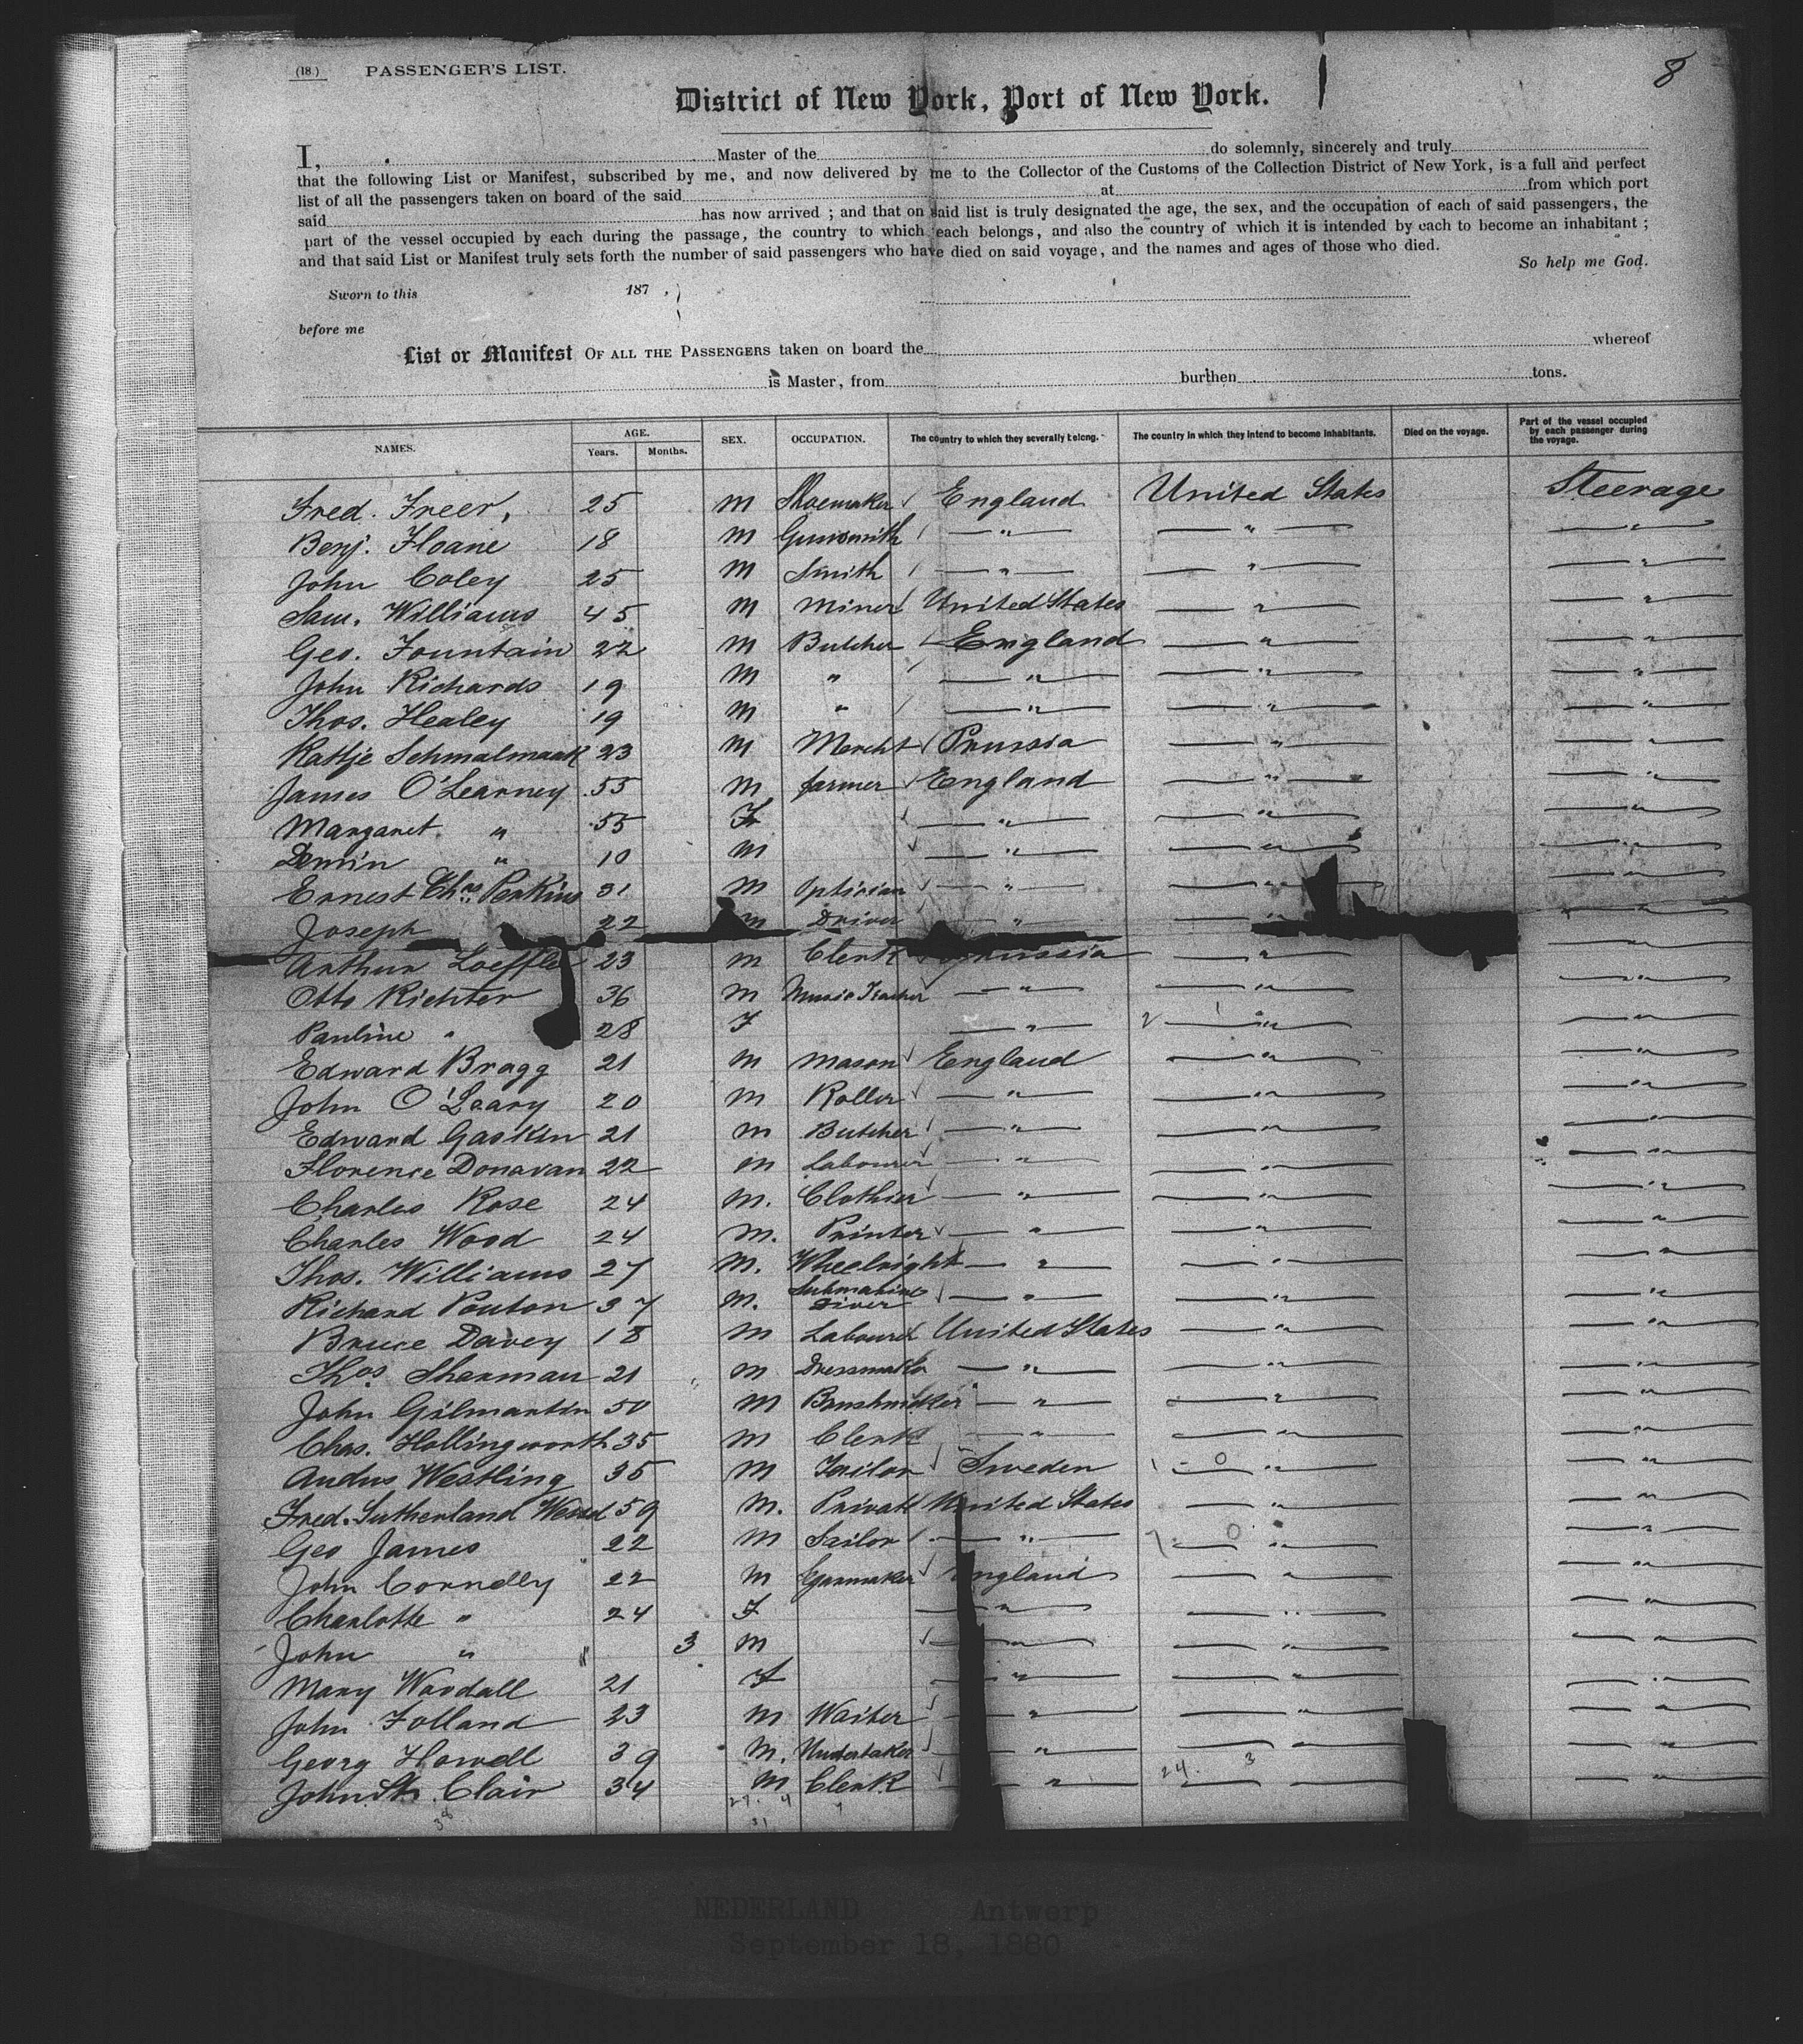 (18.) PASSENGER'S LIST. 8
District of New York, Port of New York.
I, Master of the do solemnly, sincerely and truly
that the following List or Manifest, subscribed by me, and now delivered by me to the Collector of the Customs of the Collection District of New York, is a full and perfect
list of all the passengers taken on board of the said at from which port
said has now arrived ; and that on said list is truly designated the age, the sex, and the occupation of each of said passengers, the
part of the vessel occupied by each during the passage, the country to which each belongs, and also the country of which it is intended by each to become an inhabitant ;
and that said List or Manifest truly sets forth the number of said passengers who have died on said voyage, and the names and ages of those who died.
So help me God.
Sworn to this 187 ,
before me
List or Manifest OF ALL THE PASSENGERS taken on board the whereof
is Master, from burthen tons.
NAMES. AGE. Years. Months. SEX. OCCUPATION. The country to which they severally belong. The country in which they intend to become inhabitants. Died on the voyage. Part of the vessel occupied by each passenger during the voyage.
Fred. Freer, 25 M Shoemaker England United States Steerage
Benj. Sloane 18 M Gunsmith " " "
John Coley 25 M Smith " " "
Sam. Williams 45 M Miner United States " "
Geo. Fountain 22 M Butcher England " "
John Richards 19 M " " " "
Thos. Healey 19 M " " " "
Kattje Schmalmaak 23 M Mercht Prussia " "
James O'Learney 55 M farmer England " "
Margaret " 55 F " " "
" 10 M " " "
Ernest Chas. Perkins 31 M Optician " " "
Joseph 22 M Driver " " "
Arthur Loeffler 23 M Clerk Prussia " "
Otto Richter 36 M Music Teacher " " "
Pauline " 28 F " " "
Edward Bragg 21 M Mason England " "
John O'Leary 20 M Roller " " "
Edward Gaskin 21 M Butcher " " "
Florence Donavan 22 M Labourer " " "
Charles Rose 24 M. Clothier " " "
Charles Wood 24 M. Printer " " "
Thos. Williams 27 M. Wheelright " " "
Richard Pouton 37 M. Submarine Diver " " "
Bruce Davey 18 M Labourer United States " "
Thos Sharman 21 M Dressmaker " " "
John Gilmartin 50 M Brushmaker " " "
Chas. Hollingworth 35 M Clerk " " "
Andus Westling 35 M Tailor Sweden " "
Fred. Sutherland 59 M. Private United States " "
Geo James 22 M Sailor " " "
John Connelly 22 M England " "
Charlotte " 24 F " " "
John " 3 M " " "
Mary Woodall 21 F " " "
John Folland 23 M Waiter " " "
Georg Howell 39 M. Undertaker " " "
John St. Clair 34 M Clerk " " "
NEDERLAND Antwerp
September 18, 1880